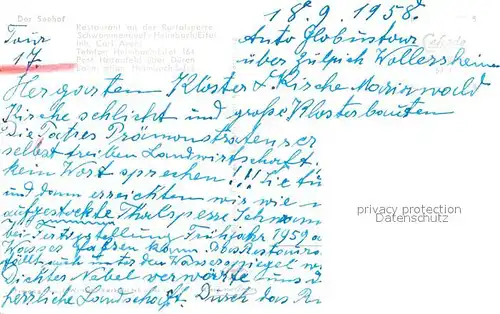 Der Seehof
18.9.1958.
Restaurant an der Rurtalsperre
Schwammenauel - Heimbach/Eifel
Inh. Carl
Telefon Heimbach/Eifel 164
Post Hasenfeld über Düren
Tour Auto Globustour
17. über Zülpich Wollersheim
Hergarten Kloster & Kirche Mariawald
Kirche schlicht und große Klosterbauten
Die Patres Prämonstratenser
selbst treiben Landwirtschaft.
kein Wort sprechen!!! Sie
und dann erreichten wir wie
aufgestockte Thalsperre Schwam
bei Fertigstellung Frühjahr 1959
Wasser fassen kann. Das Restaura
fällt auch unter den Wasserspiegel
Dichtes Nebel verwörte uns d
herrliche Landschaft. Durch das
privacy protection
Datenschutz